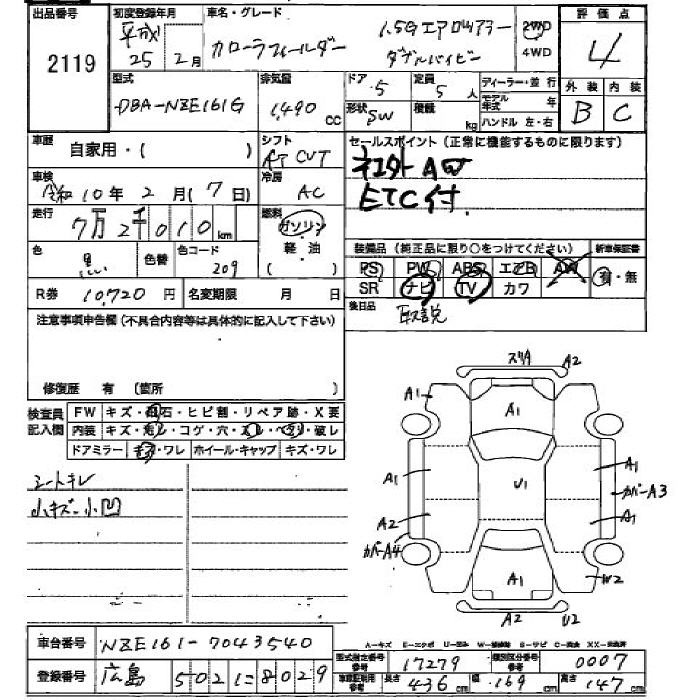 出品番号 初度登録年月 車名・グレード 評価点
2119 平成25年2月 カローラフィールダー 1.5Gエアロツアラー ダブルバイビー 2WD 4WD 4
型式 排気量 ドア 定員 ディーラー・並行 外装 内装
DBA-NZE161G 1,490 cc 5 5人 モデル年式 年 B C
形状 SW 積載 kg ハンドル 左・右
車歴 自家用・( ) シフト AT CVT セールスポイント(正常に機能するものに限ります)
車検 令和10年2月(7日) 冷房 AC
ETC付
走行 7万2千010km 燃料 ガソリン 軽油 ( )
色 黒 色替 色コード 209 装備品(純正品に限り○をつけてください) 新車保証書
PS PW ABS エアB AW 有・無
R券 10,720円 名変期限 月 日 SR ナビ TV カワ
後日品 取説
注意事項申告欄(不具合内容等は具体的に記入して下さい)
修復歴 有 (箇所 )
検査員記入欄 FW キズ・飛石・ヒビ割・リペア跡・X要
内装 キズ・汚レ・コゲ・穴・スレ・ベタツ・破レ
ドアミラー キズ・ワレ ホイール・キャップ キズ・ワレ
シートキレ
小キズ 小凹
スリA A2
A1 A1
A1 U1 A1
カバーA3
A2 A1
カバーA4
A1 W2
A2 U2
A-キズ E-エクボ U-凹み W-補修跡 S-サビ C-腐食 XX-交換済
車台番号 NZE161-7043540
型式指定番号 参考 17279 類別区分番号 参考 0007
登録番号 広島 502に8029
車庫証明用 参考 長さ 436cm 幅 169cm 高さ 147cm